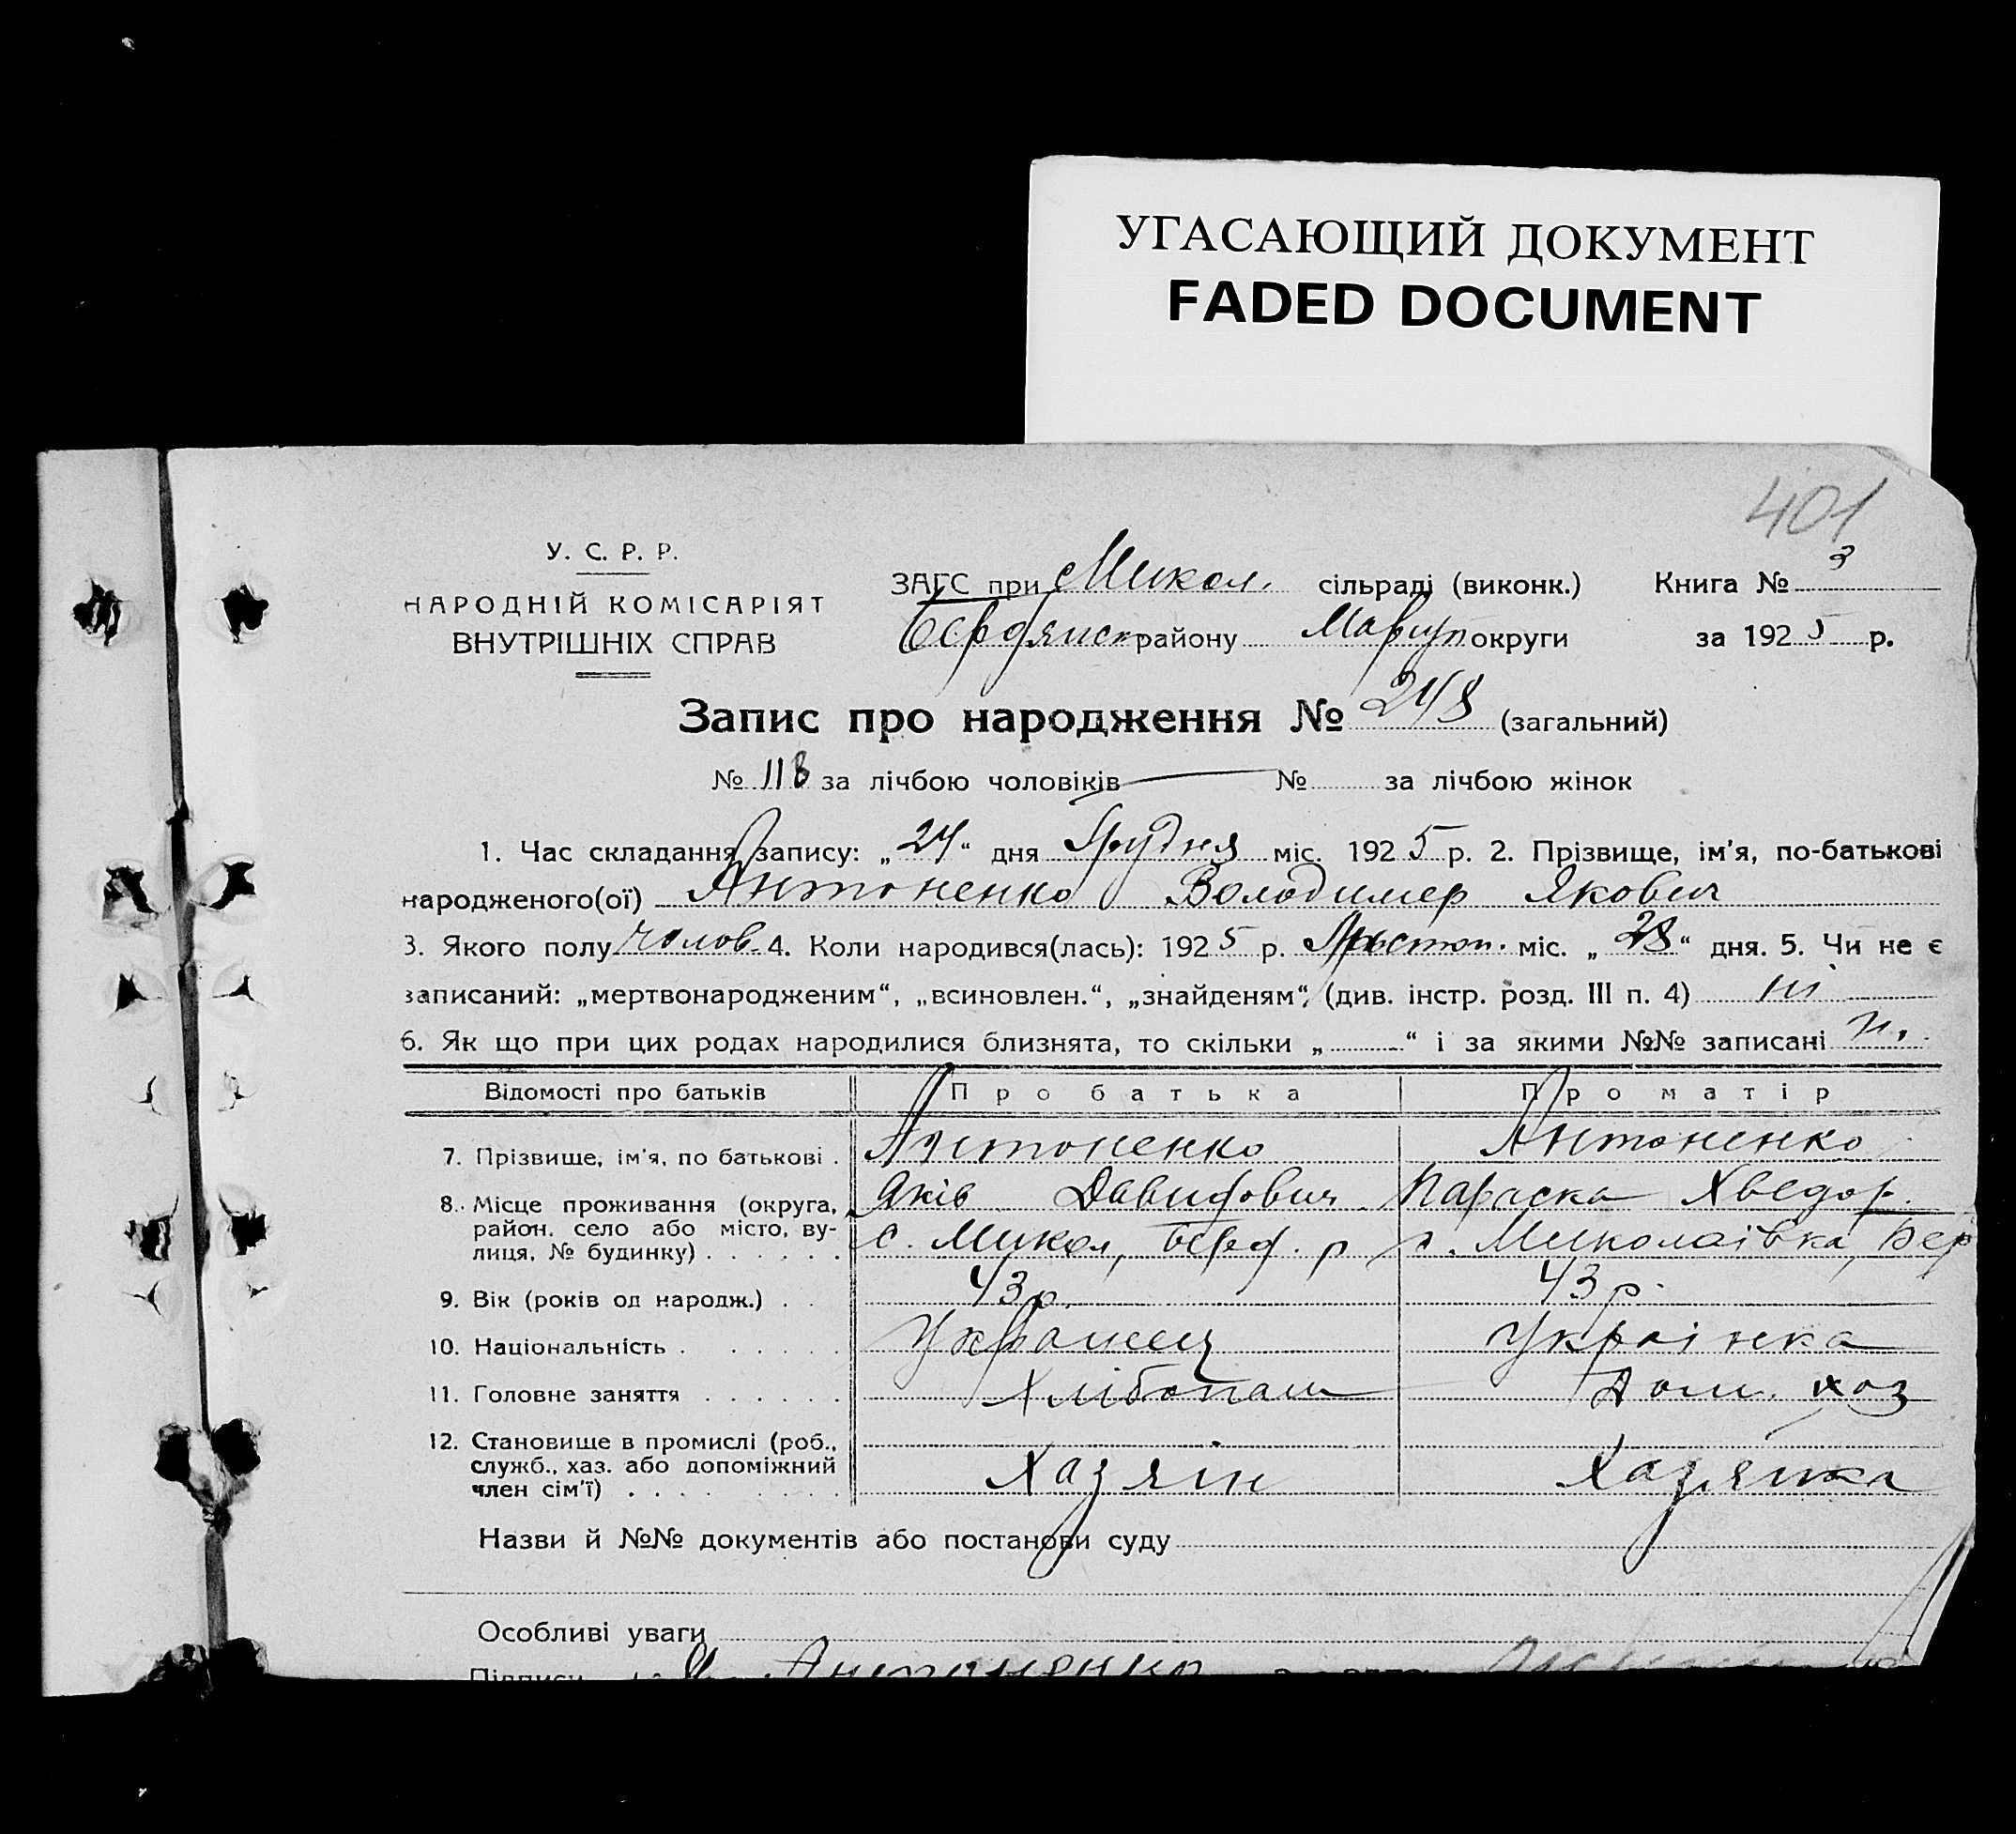 УГАСАЮЩИЙ ДОКУМЕНТ
FADED DOCUMENT
401
У. С. Р. Р.
НАРОДНІЙ КОМІСАРІЯТ
ВНУТРІШНІХ СПРАВ
ЗАГС при Микол. сільраді (виконк.) Книга № 3
Бердянск району Мариуп округи за 1925 р.
Запис про народження № 248 (загальний)
№ 118 за лічбою чоловіків № за лічбою жінок
1. Час складання запису: „24“ дня Грудня міс. 1925 р. 2. Прізвище, ім'я, по-батькові
народженого(ої) Антоненко Володимер Якович
3. Якого полу чолов. 4. Коли народився(лась): 1925 р. міс. „28“ дня. 5. Чи не є
записаний: „мертвонародженим“, „всиновлен.“, „знайденям“, (див. інстр. розд. III п. 4) ні
6. Як що при цих родах народилися близнята, то скільки „ “ і за якими №№ записані н.
Відомості про батьків Про батька Про матір
7. Прізвище, ім'я, по батькові . Антоненко Антоненко
Яків Давидович Параска Хведор.
8. Місце проживання (округа, район, село або місто, вулиця, № будинку) . . . . . . с. Микол, берд. р с. Миколаівка, Бер
9. Вік (років од народж.) . . 43 р. 43 р.
10. Національність . . . . . . Украинец Украінка
11. Головне заняття . . . . . . Хлібопаш Дом. хоз
12. Становище в промислі (роб., служб., хаз. або допоміжний член сім'ї) . . . . Хазяін Хазяйка
Назви й №№ документів або постанови суду
Особливі уваги
Підписи Я. Антоненко